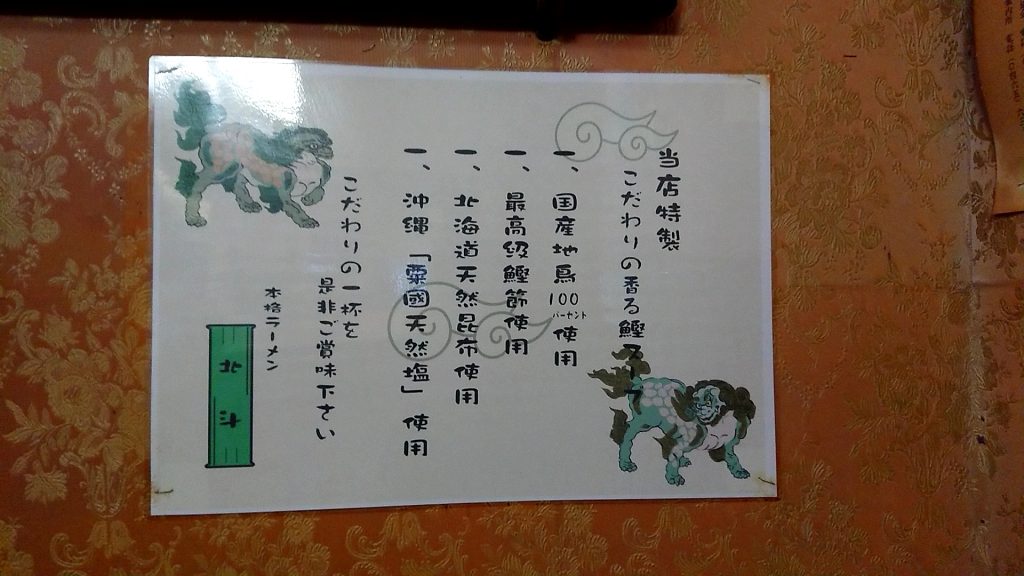 当店特製
こだわりの香る鰹スープ
一、国産地鳥100パーセント使用
一、最高級鰹節使用
一、北海道天然昆布使用
一、沖縄「粟國天然塩」使用
こだわりの一杯を
是非ご賞味下さい
本格ラーメン
北斗